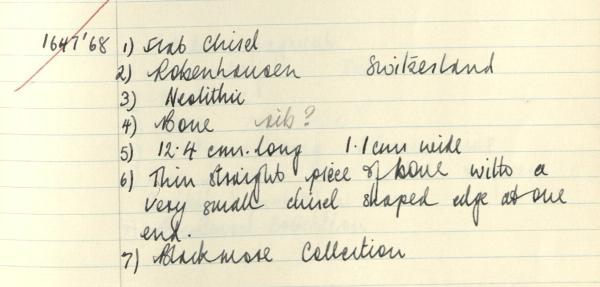 1647'68 1) Flat Chisel
2) Robenhausen Switzerland
3) Neolithic
4) Bone rib?
5) 12.4 cm. long 1.1 cm wide
6) Thin straight piece of bone with a
very small chisel shaped edge at one
end.
7) Blackmore Collection